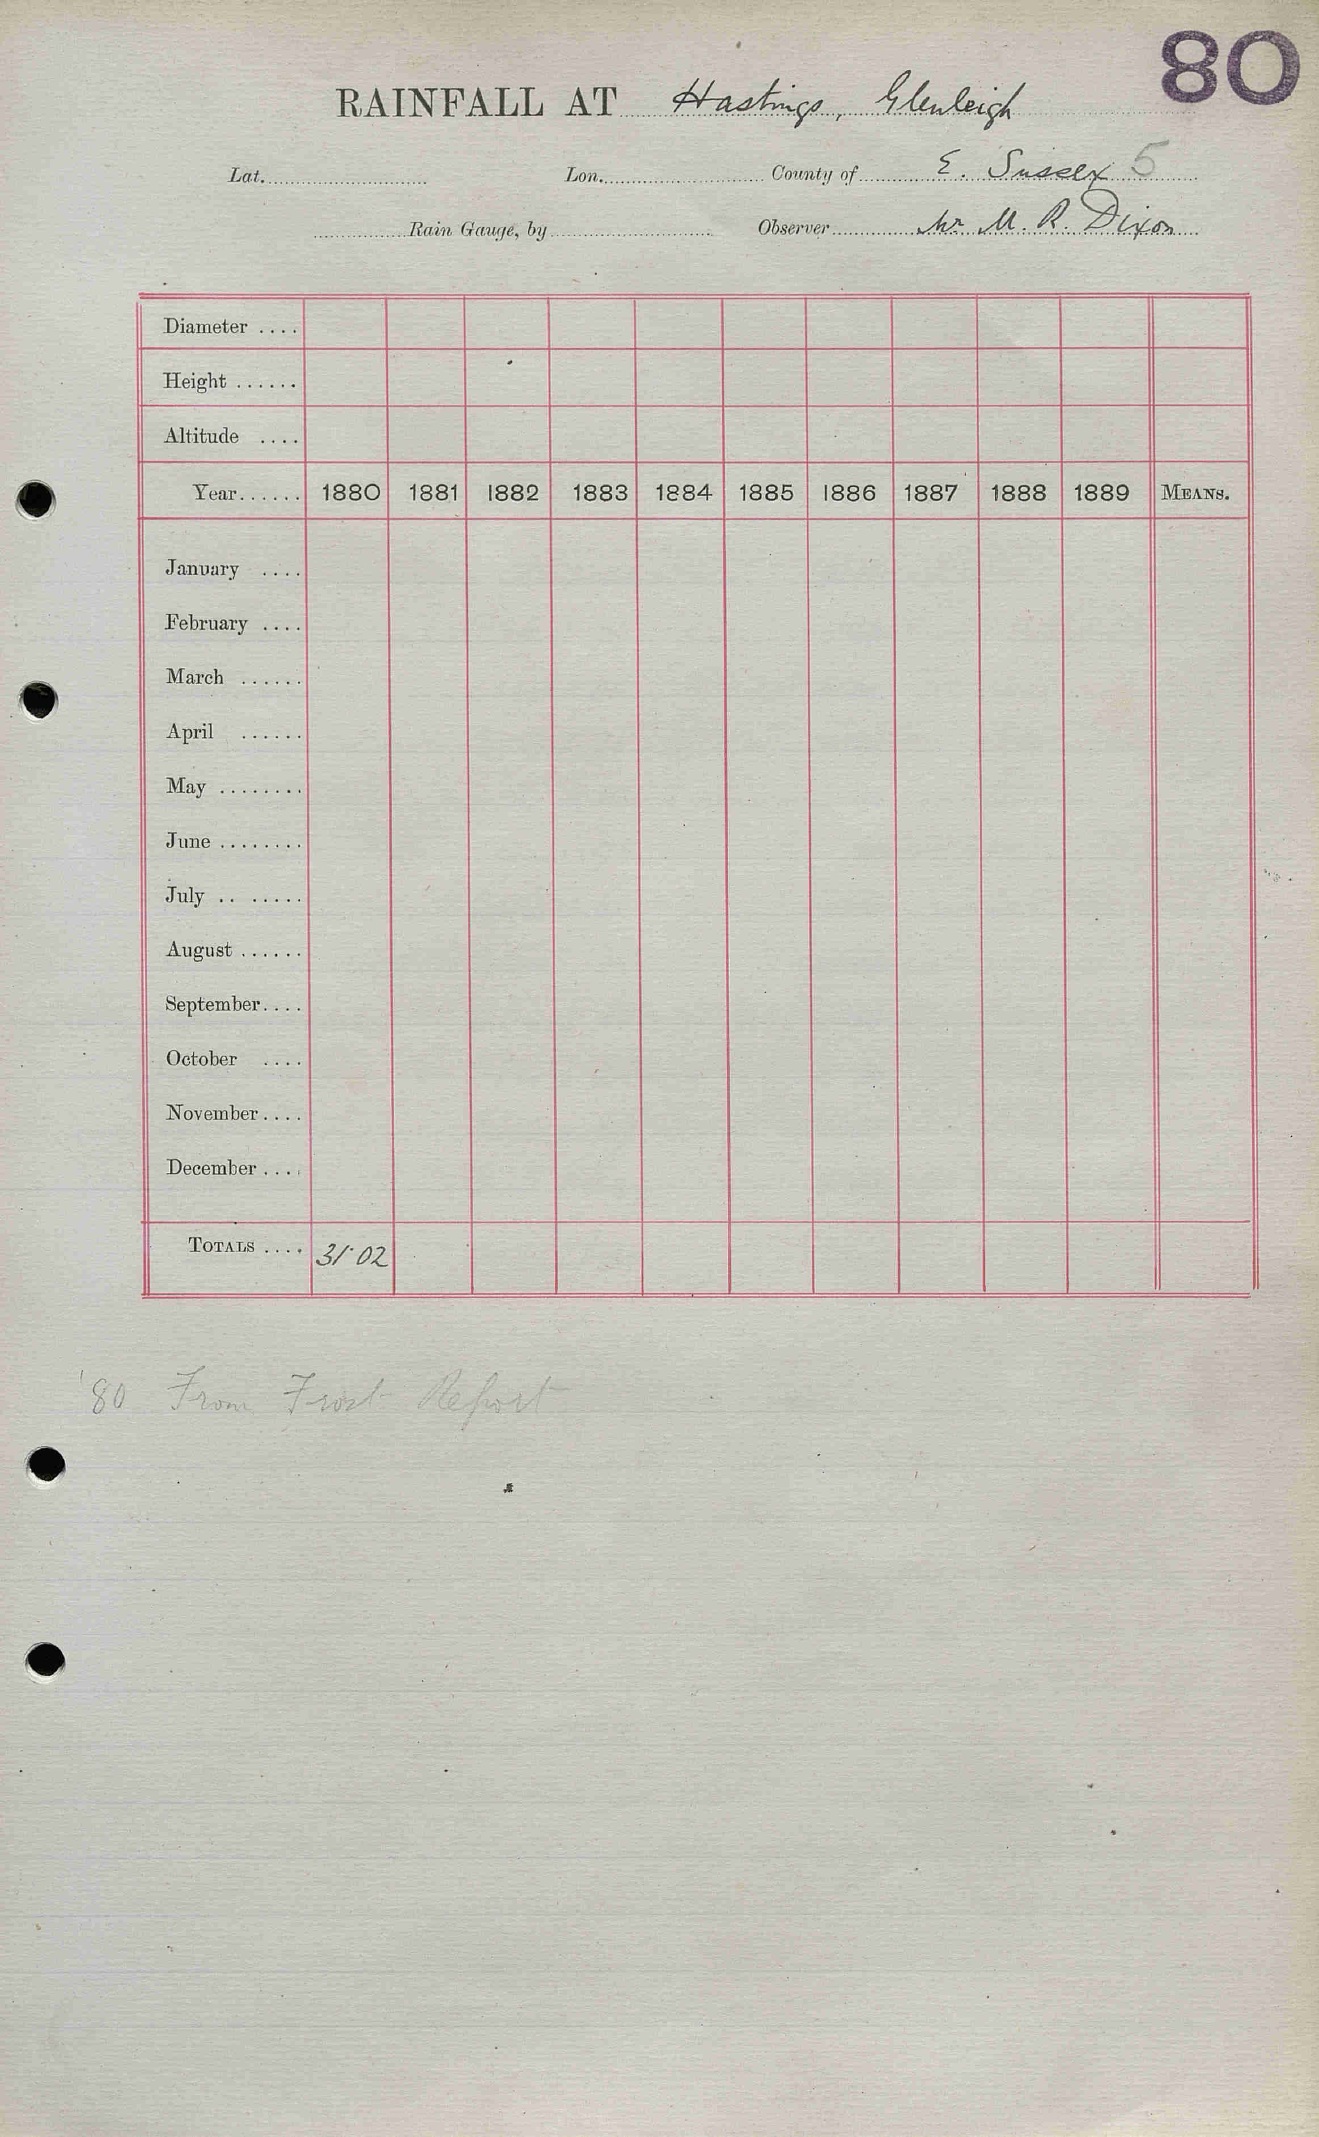 80
RAINFALL AT Hastings, Glenleigh
Lat. Lon. County of E. Sussex 5
Rain Gauge, by Observer Mr M. R. Dixon
Diameter ....
Height ......
Altitude ....
Year...... 1880 1881 1882 1883 1884 1885 1886 1887 1888 1889 MEANS.
January ....
February ....
March ......
April ......
May ........
June ........
July .. .....
August ......
September....
October ....
November....
December ....
TOTALS .... 31·02
'80 From Frost Report